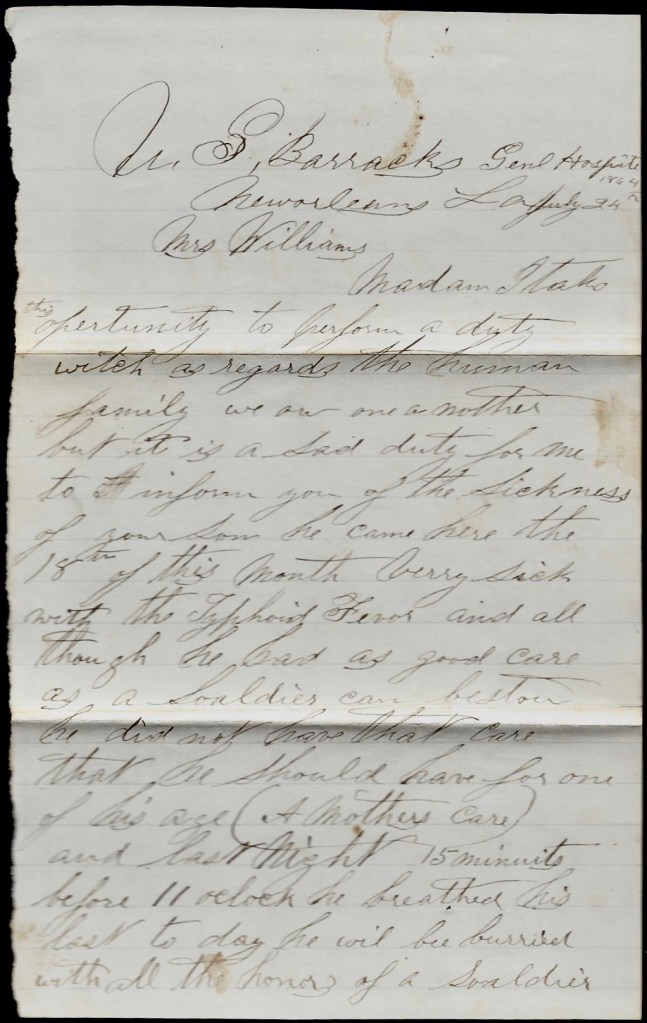 U. S. Barracks Genl Hospitle
1864
Neworleans La July 24th
Mrs Williams
Madam I take
this
opertunity to perform a duty
witch as regards the human
family we ow one a nother
but it is a sad duty for me
to inform you of the sickness
of your son he came here the
18th of this month verry sick
with the Typhoid Fevor and all
though he had as good care
as a soaldier can bestow
he did not have that care
that he should have for one
of his age (A Mothers Care)
and last Night 15 minuits
before 11 oclock he breathed his
last to day he wil bee burried
with all the honors of a soaldier